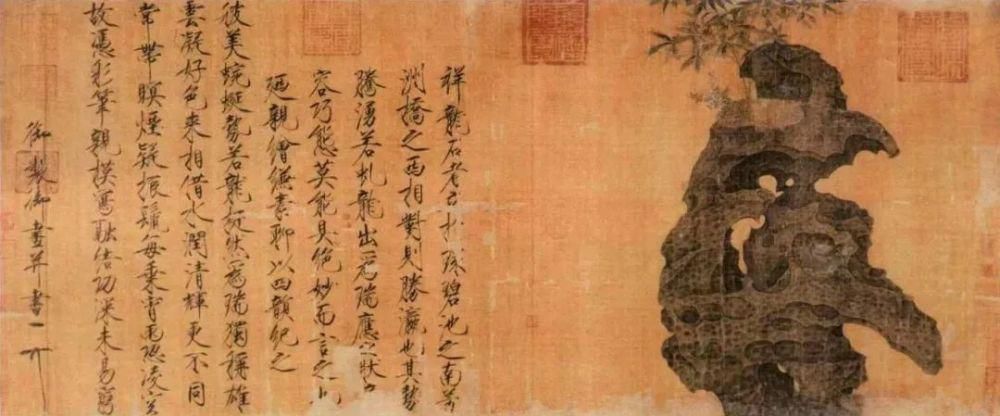 祥龍石者立於環碧池之南芳
洲橋之西相對則勝瀛也其勢
騰湧若虬龍出為瑞應之狀
容巧態莫能具絕妙而言之也
廼親繪縑素聊以四韻紀之
彼美蜿蜒勢若龍挺然為瑞獨稱雄
雲凝好色來相借水潤清輝更不同
常帶暝煙疑振鬣每乘宵雨恐凌空
故憑彩筆親模寫融結功深未易窮
御製御畫并書